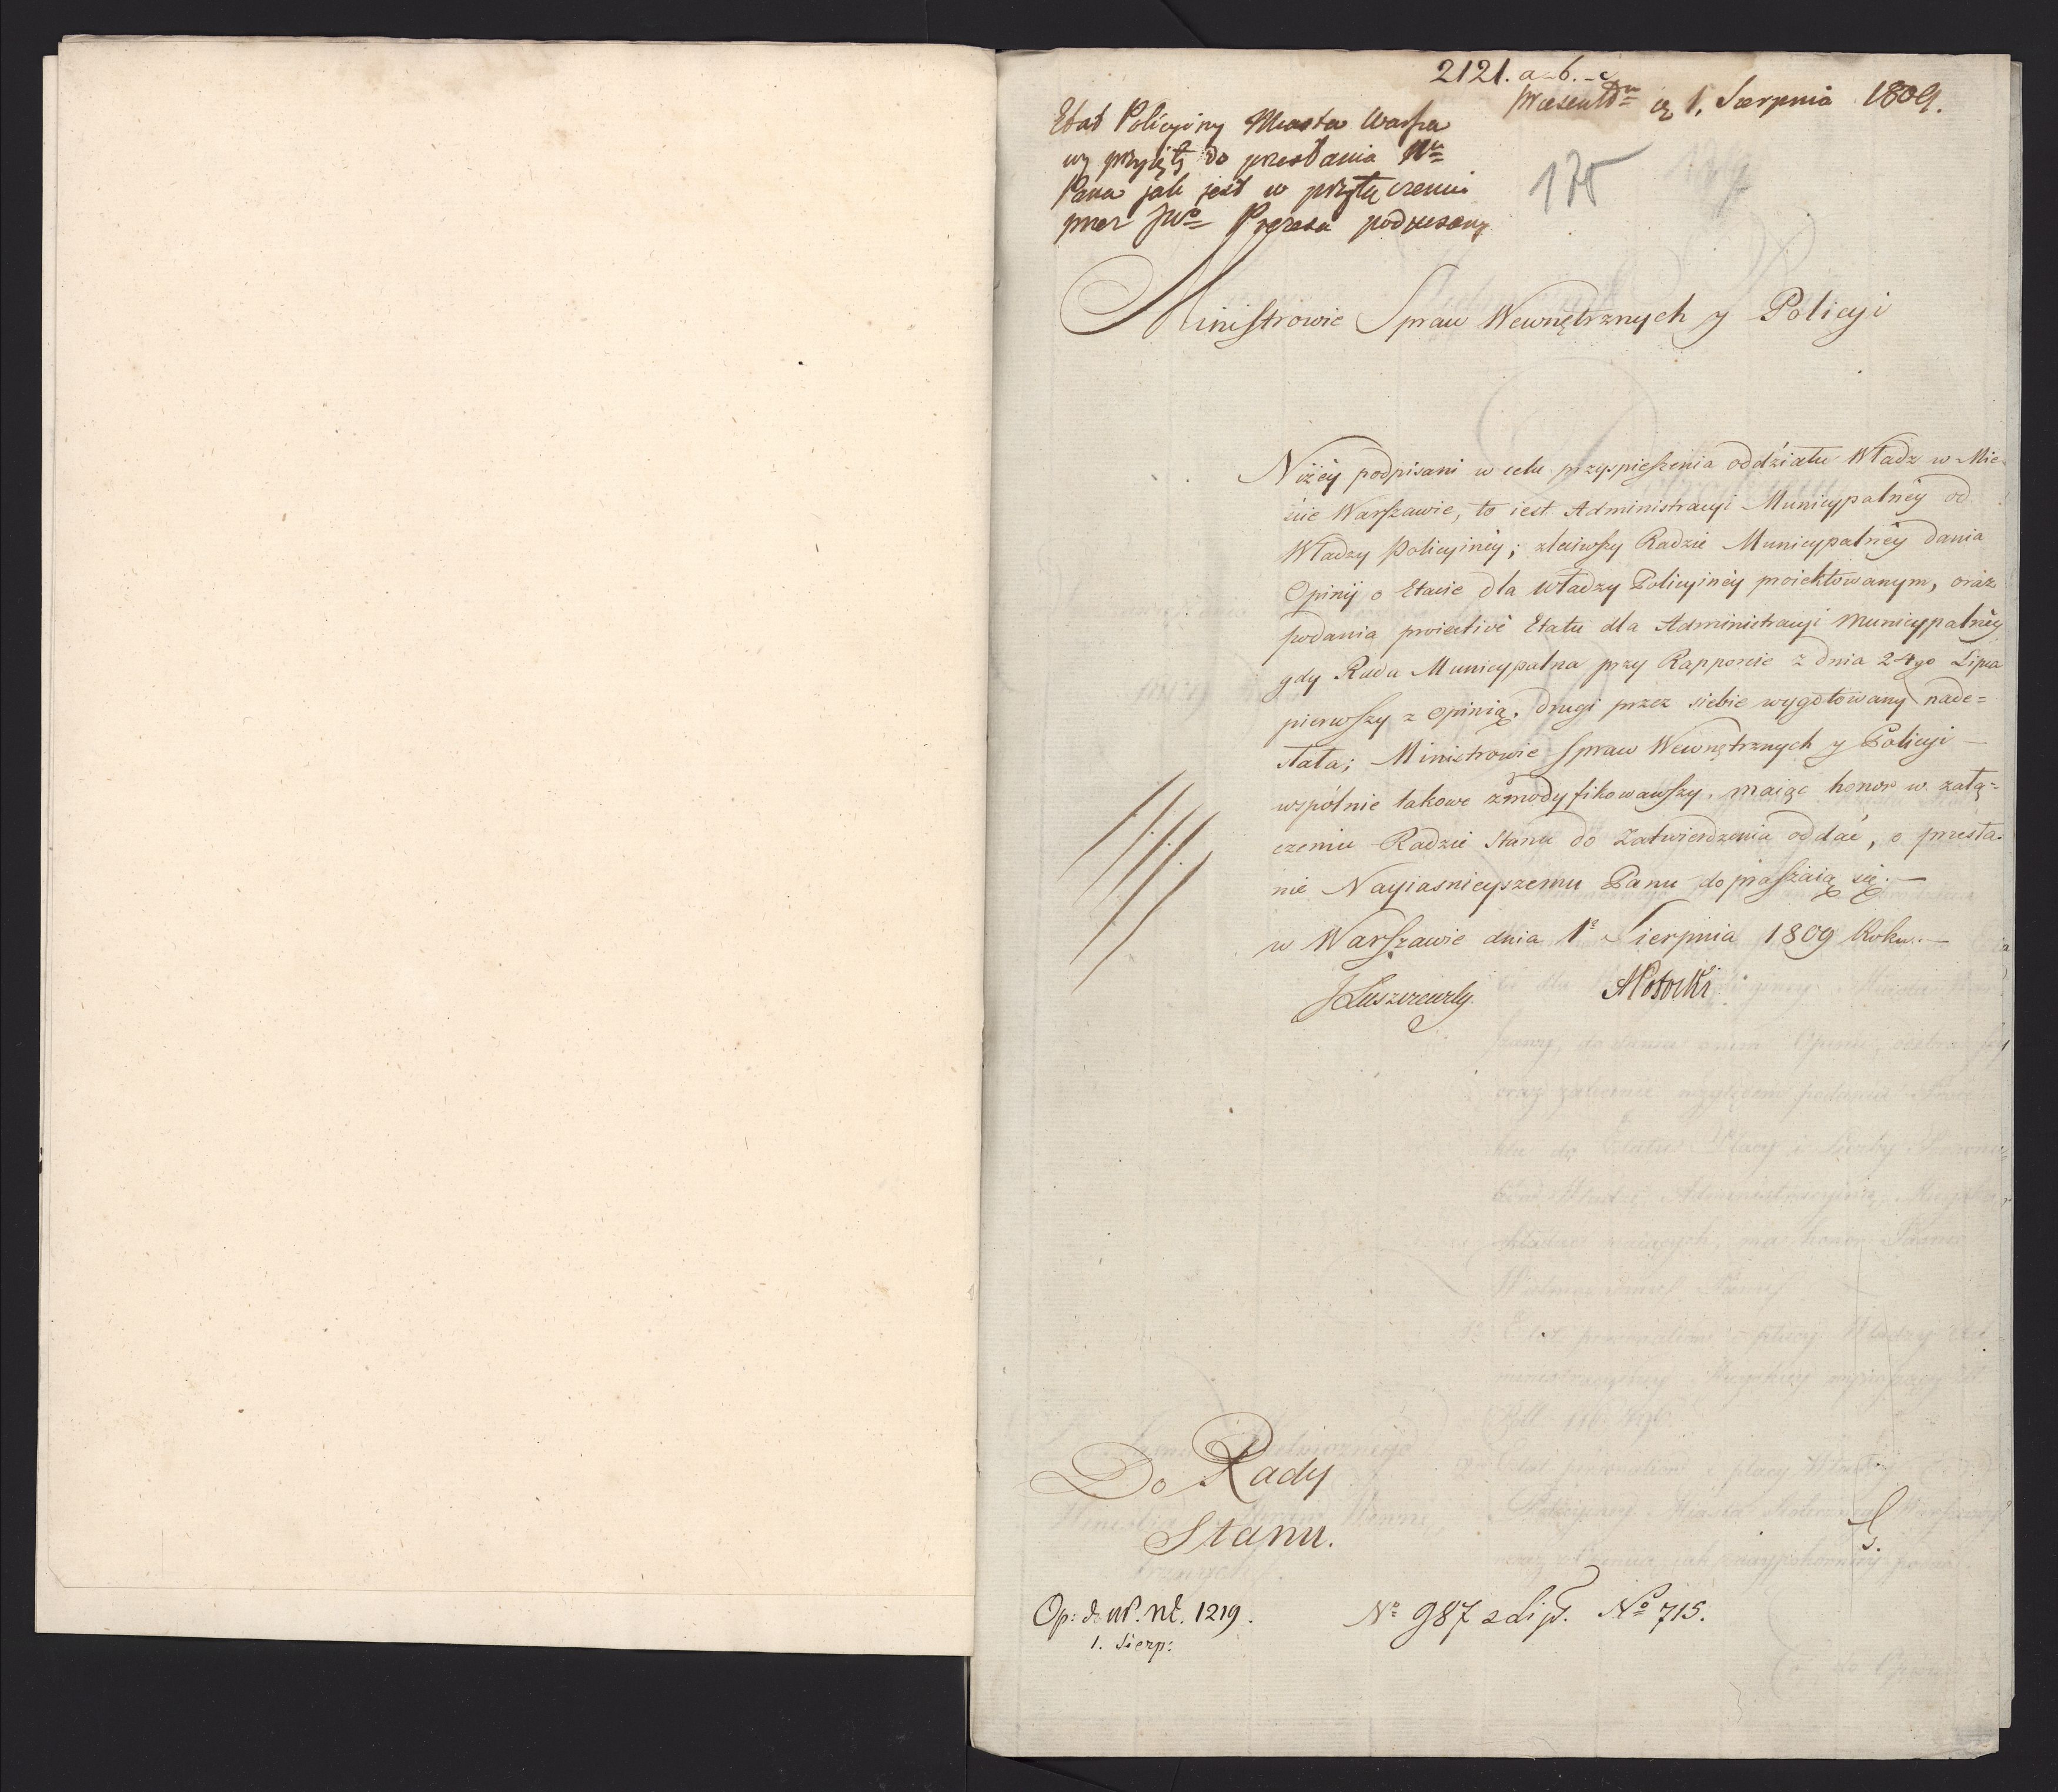 2121. a-b.-c
Præsent. Dn. 1. Sierpnia 1809.
Etat Policyiny Miasta Warsza
wy przyięty do przesłania Nu
Panu jak jest w przyłączeniu
przez JWo Prezesa podpisany
175
Ministrowie Spraw Wewnętrznych y Policyi
Niżéy podpisani w celu przyspieszenia oddziału Władz w Mie-
ście Warszawie, to iest Administracyi Municypalnéy od
Władzy Policyinéy; zleciwszy Radzie Municypalnéy dania
Opinij o Etacie dla Władzy Policyinéy proiektowanym, oraz
podania proiektivé Etatu dla Administracyi Municypalnéy
gdy Rada Municypalna przy Rapporcie z dnia 24go Lipca
pierwszy z opinią, drugi przez siebie wygotowany nade=
słała; Ministrowie Spraw Wewnętrznych y Policyi —
wspólnie takowe zmodyfikowawszy, maiąc honor w załą=
czeniu Radzie Stanu do Zatwierdzenia oddać, o przesła-
nie Nayiasnieyszemu Panu dopraszaią się. —
w Warszawie dnia 1o Sierpnia 1809 Roku. —
JŁuszczewski
APotocki
Do Rady
Stanu.
Op: d. W. Nt. 1219.
1. Sierp:
No 987 z Lip. No 715.